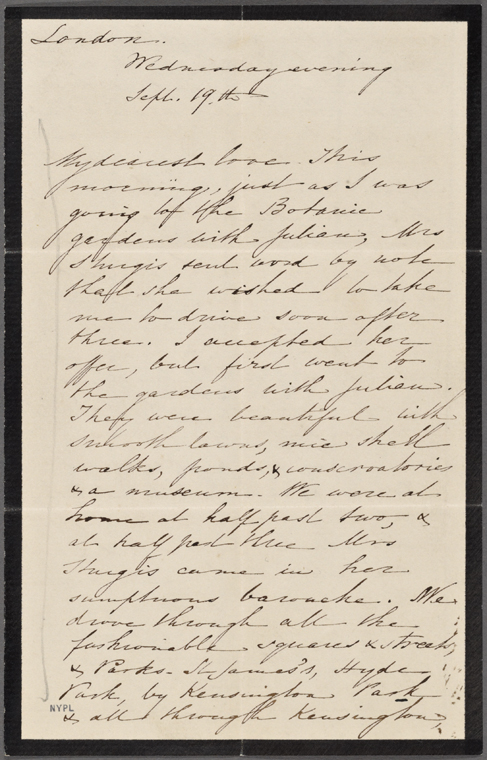 London.
Wednesday evening
Sept. 19th
My dearest love. This
morning, just as I was
going to the Botanic
gardens with Julian, Mrs
Sturgis sent word by note
that she wished to take
me to drive soon after
three. I accepted her
offer, but first went to
the gardens with Julian.
They were beautiful with
smooth lawns, nice shell
walks, ponds, & conservatories
& a museum. We were at
home at half past two, &
at half past three Mrs
Sturgis came in her
sumptuous barouche. We
drove through all the
fashionable squares & streets,
& Parks - St James's, Hyde
Park, by Kensington Park
& all through Kensington,
NYPL